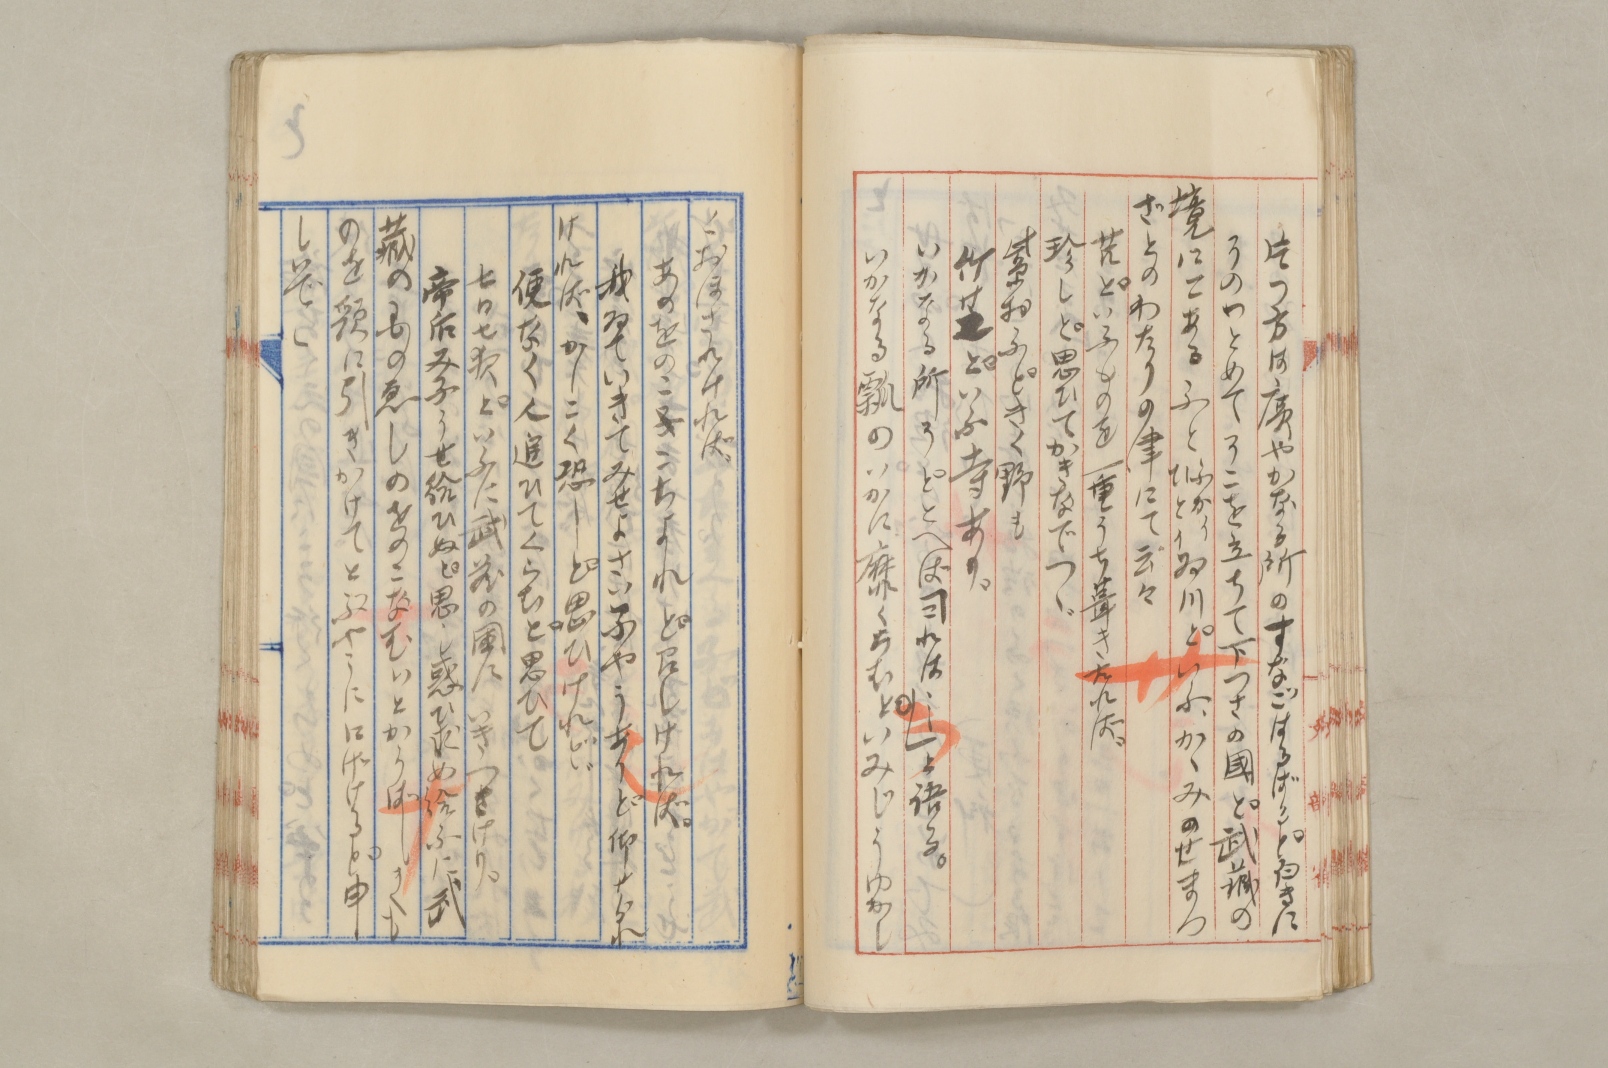 片つ方は廣やかなる所のすなごはるばると白きに
そのつとめてそこを立ちて下つさの國と武藏の
境にてあるふとゐ川といふ、かゝみのせまつ
ざとのわたりの津にて云々
荒といふものを一重うち葺きたれば。
珍しと思ひてかきなでつゝ
紫おふときく野も
竹芝といふ寺あり。
いかなる所ぞととへば これは
と語る。
いかなる瓢のいかに靡くらむといみじうゆかし
とおぼされければ。
あのをのここちよれと召しければ。
我ゐていきてみせよさいふやうありと仰せられ
ければ、かしこく恐しと思ひけれど
便なく人追ひてくらむと思ひて
七日七夜といふに武藏の國にいきつきけり。
帝后みこうせ給ひぬと思し惑ひ求め給ふに武
藏の國の衞しのをのこなむいとかうばしきも
のを頸に引きかけてとぶやうににげけると申
し出て